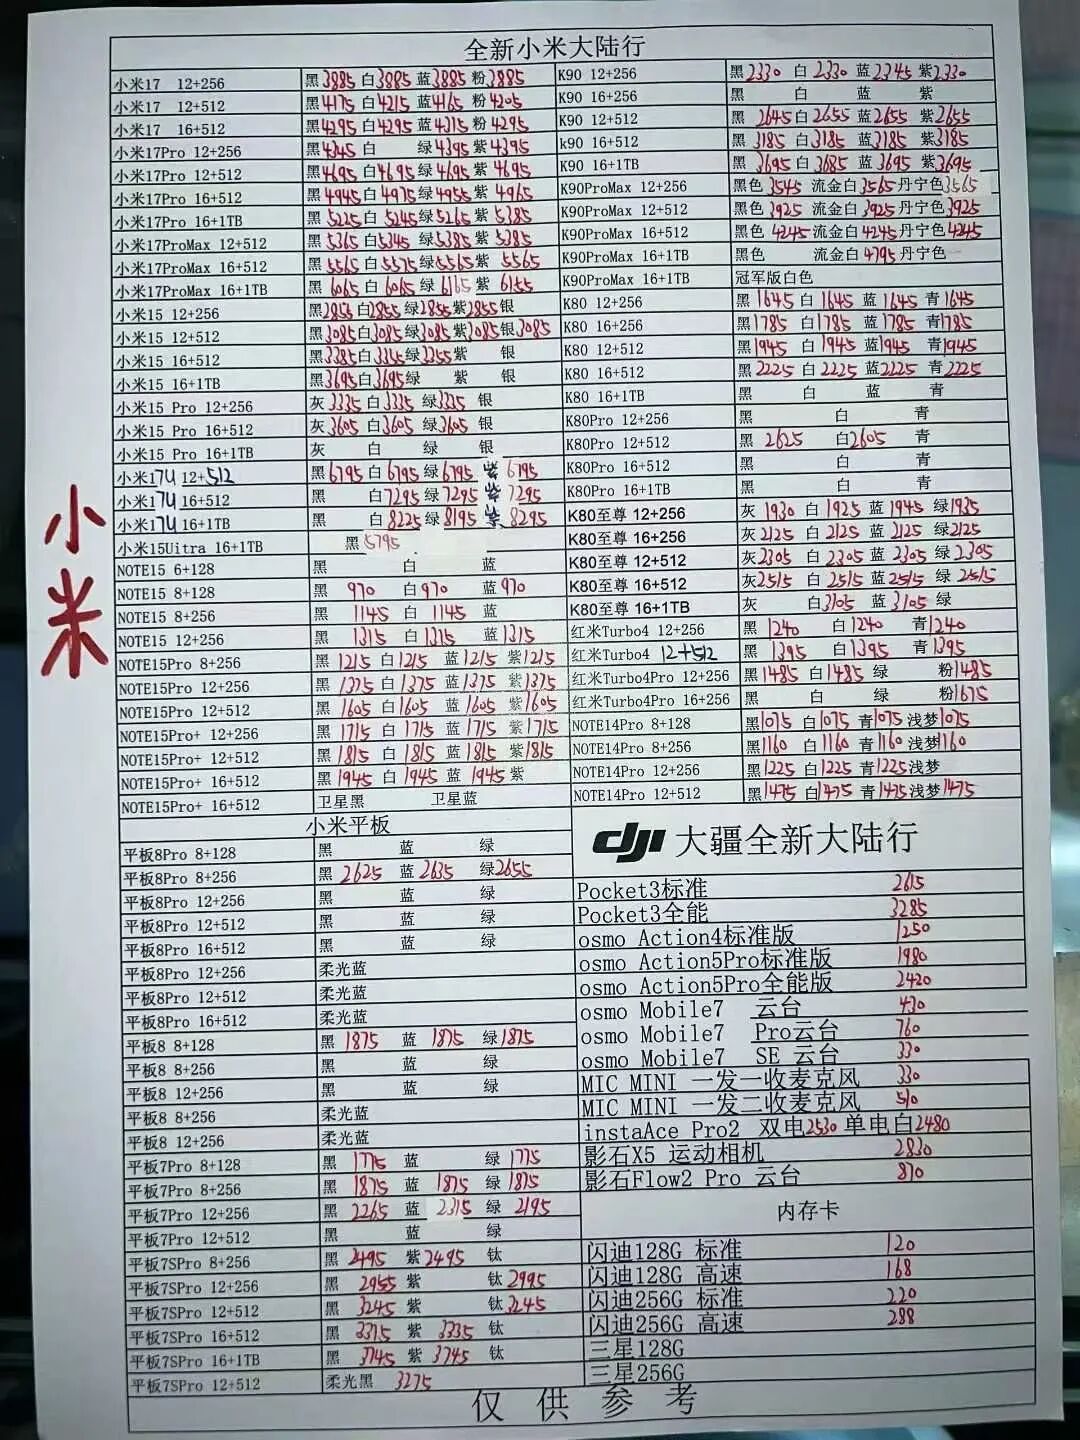 全新小米大陆行
小米17 12+256 黑3885 白3885 蓝3885 粉3885
小米17 12+512 黑4175 白4215 蓝4165 粉4205
小米17 16+512 黑4295 白4295 蓝4315 粉4295
小米17Pro 12+256 黑4345 白 绿4395 紫4395
小米17Pro 12+512 黑4695 白4695 绿4695 紫4695
小米17Pro 16+512 黑4945 白4975 绿4955 紫4965
小米17Pro 16+1TB 黑5225 白5245 绿5265 紫5385
小米17ProMax 12+512 黑5365 白5345 绿5385 紫5385
小米17ProMax 16+512 黑5565 白5575 绿5565 紫5565
小米17ProMax 16+1TB 黑6065 白6065 绿6165 紫6155
小米15 12+256 黑2855 白2855 绿2855 紫2855 银
小米15 12+512 黑3085 白3085 绿3085 紫3085 银3085
小米15 16+512 黑3385 白 绿3355 紫 银
小米15 16+1TB 黑3695 白3695 绿 紫 银
小米15 Pro 12+256 灰3335 白3335 绿3335 银
小米15 Pro 16+512 灰3605 白3605 绿3605 银
小米15 Pro 16+1TB 灰 白 绿 银
小米17U 12+512 黑6795 白6795 绿6795 紫6795
小米17U 16+512 黑 白7295 绿7295 紫7295
小米17U 16+1TB 黑 白8225 绿8195 紫8295
小米15Uitra 16+1TB 黑5795
NOTE15 6+128 黑 白 蓝
NOTE15 8+128 黑970 白970 蓝970
NOTE15 8+256 黑1145 白1145 蓝
NOTE15 12+256 黑1315 白1315 蓝1315
NOTE15Pro 8+256 黑1215 白1215 蓝1215 紫1215
NOTE15Pro 12+256 黑1375 白1375 蓝1375 紫1375
NOTE15Pro 12+512 黑1605 白1605 蓝1605 紫1605
NOTE15Pro+ 12+256 黑1715 白1715 蓝1715 紫1715
NOTE15Pro+ 12+512 黑1815 白1815 蓝1815 紫1815
NOTE15Pro+ 16+512 黑1945 白1945 蓝1945 紫
NOTE15Pro+ 16+512 卫星黑 卫星蓝
K90 12+256 黑2330 白2330 蓝2345 紫2330
K90 16+256 黑 白 蓝 紫
K90 12+512 黑2645 白2655 蓝2655 紫2655
k90 16+512 黑3185 白3185 蓝3185 紫3185
K90 16+1TB 黑3695 白3685 蓝3695 紫3695
K90ProMax 12+256 黑色3545 流金白3565 丹宁色3565
K90ProMax 12+512 黑色3925 流金白3925 丹宁色3925
K90ProMax 16+512 黑色4245 流金白4245 丹宁色4245
K90ProMax 16+1TB 黑色 流金白4795 丹宁色
K90ProMax 16+1TB 冠军版白色
K80 12+256 黑1645 白1645 蓝1645 青1645
K80 16+256 黑1785 白1785 蓝1785 青1785
K80 12+512 黑1945 白1945 蓝1945 青1945
K80 16+512 黑2225 白2225 蓝2225 青2225
K80 16+1TB 黑 白 蓝 青
K80Pro 12+256 黑 白 青
K80Pro 12+512 黑2625 白2605 青
K80Pro 16+512 黑 白 青
K80Pro 16+1TB 黑 白 青
K80至尊 12+256 灰1930 白1925 蓝1945 绿1935
K80至尊 16+256 灰2125 白2125 蓝2125 绿2125
K80至尊 12+512 灰2305 白2305 蓝2305 绿2305
K80至尊 16+512 灰2515 白2515 蓝2515 绿2515
K80至尊 16+1TB 灰 白3105 蓝3105 绿
红米Turbo4 12+256 黑1240 白1240 青1240
红米Turbo4 12+512 黑1395 白1395 青1395
红米Turbo4Pro 12+256 黑1485 白1485 绿 粉1485
红米Turbo4Pro 16+256 黑 白 绿 粉1675
NOTE14Pro 8+128 黑1075 白1075 青1075 浅梦1075
NOTE14Pro 8+256 黑1160 白1160 青1160 浅梦1160
NOTE14Pro 12+256 黑1225 白1225 青1225 浅梦
NOTE14Pro 12+512 黑1475 白1475 青1475 浅梦1475
小米
小米平板
平板8Pro 8+128 黑 蓝 绿
平板8Pro 8+256 黑2625 蓝2635 绿2655
平板8Pro 12+256 黑 蓝 绿
平板8Pro 12+512 黑 蓝 绿
平板8Pro 16+512 黑 蓝 绿
平板8Pro 12+256 柔光蓝
平板8Pro 12+512 柔光蓝
平板8Pro 16+512 柔光蓝
平板8 8+128 黑1875 蓝1875 绿1875
平板8 8+256 黑 蓝 绿
平板8 12+256 黑 蓝 绿
平板8 8+256 柔光蓝
平板8 12+256 柔光蓝
平板7Pro 8+128 黑1775 蓝 绿1775
平板7Pro 8+256 黑1875 蓝1875 绿1875
平板7Pro 12+256 黑2265 蓝2315 绿2195
平板7Pro 12+512 黑 蓝 绿
平板7SPro 8+256 黑2495 紫2495 钛
平板7SPro 12+256 黑2955 紫 钛2995
平板7SPro 12+512 黑3245 紫 钛3245
平板7SPro 16+512 黑3375 紫3335 钛
平板7SPro 16+1TB 黑3745 紫3745 钛
平板7SPro 12+512 柔光黑 3275
dji 大疆全新大陆行
Pocket3标准 2615
Pocket3全能 3285
osmo Action4标准版 1250
osmo Action5Pro标准版 1980
osmo Action5Pro全能版 2420
osmo Mobile7 云台 430
osmo Mobile7 Pro云台 760
osmo Mobile7 SE 云台 330
MIC MINI 一发一收麦克风 330
MIC MINI 一发二收麦克风 510
instaAce Pro2 双电2530 单电白2480
影石X5 运动相机 2830
影石Flow2 Pro 云台 810
内存卡
闪迪128G 标准 120
闪迪128G 高速 168
闪迪256G 标准 220
闪迪256G 高速 288
三星128G
三星256G
仅供参考